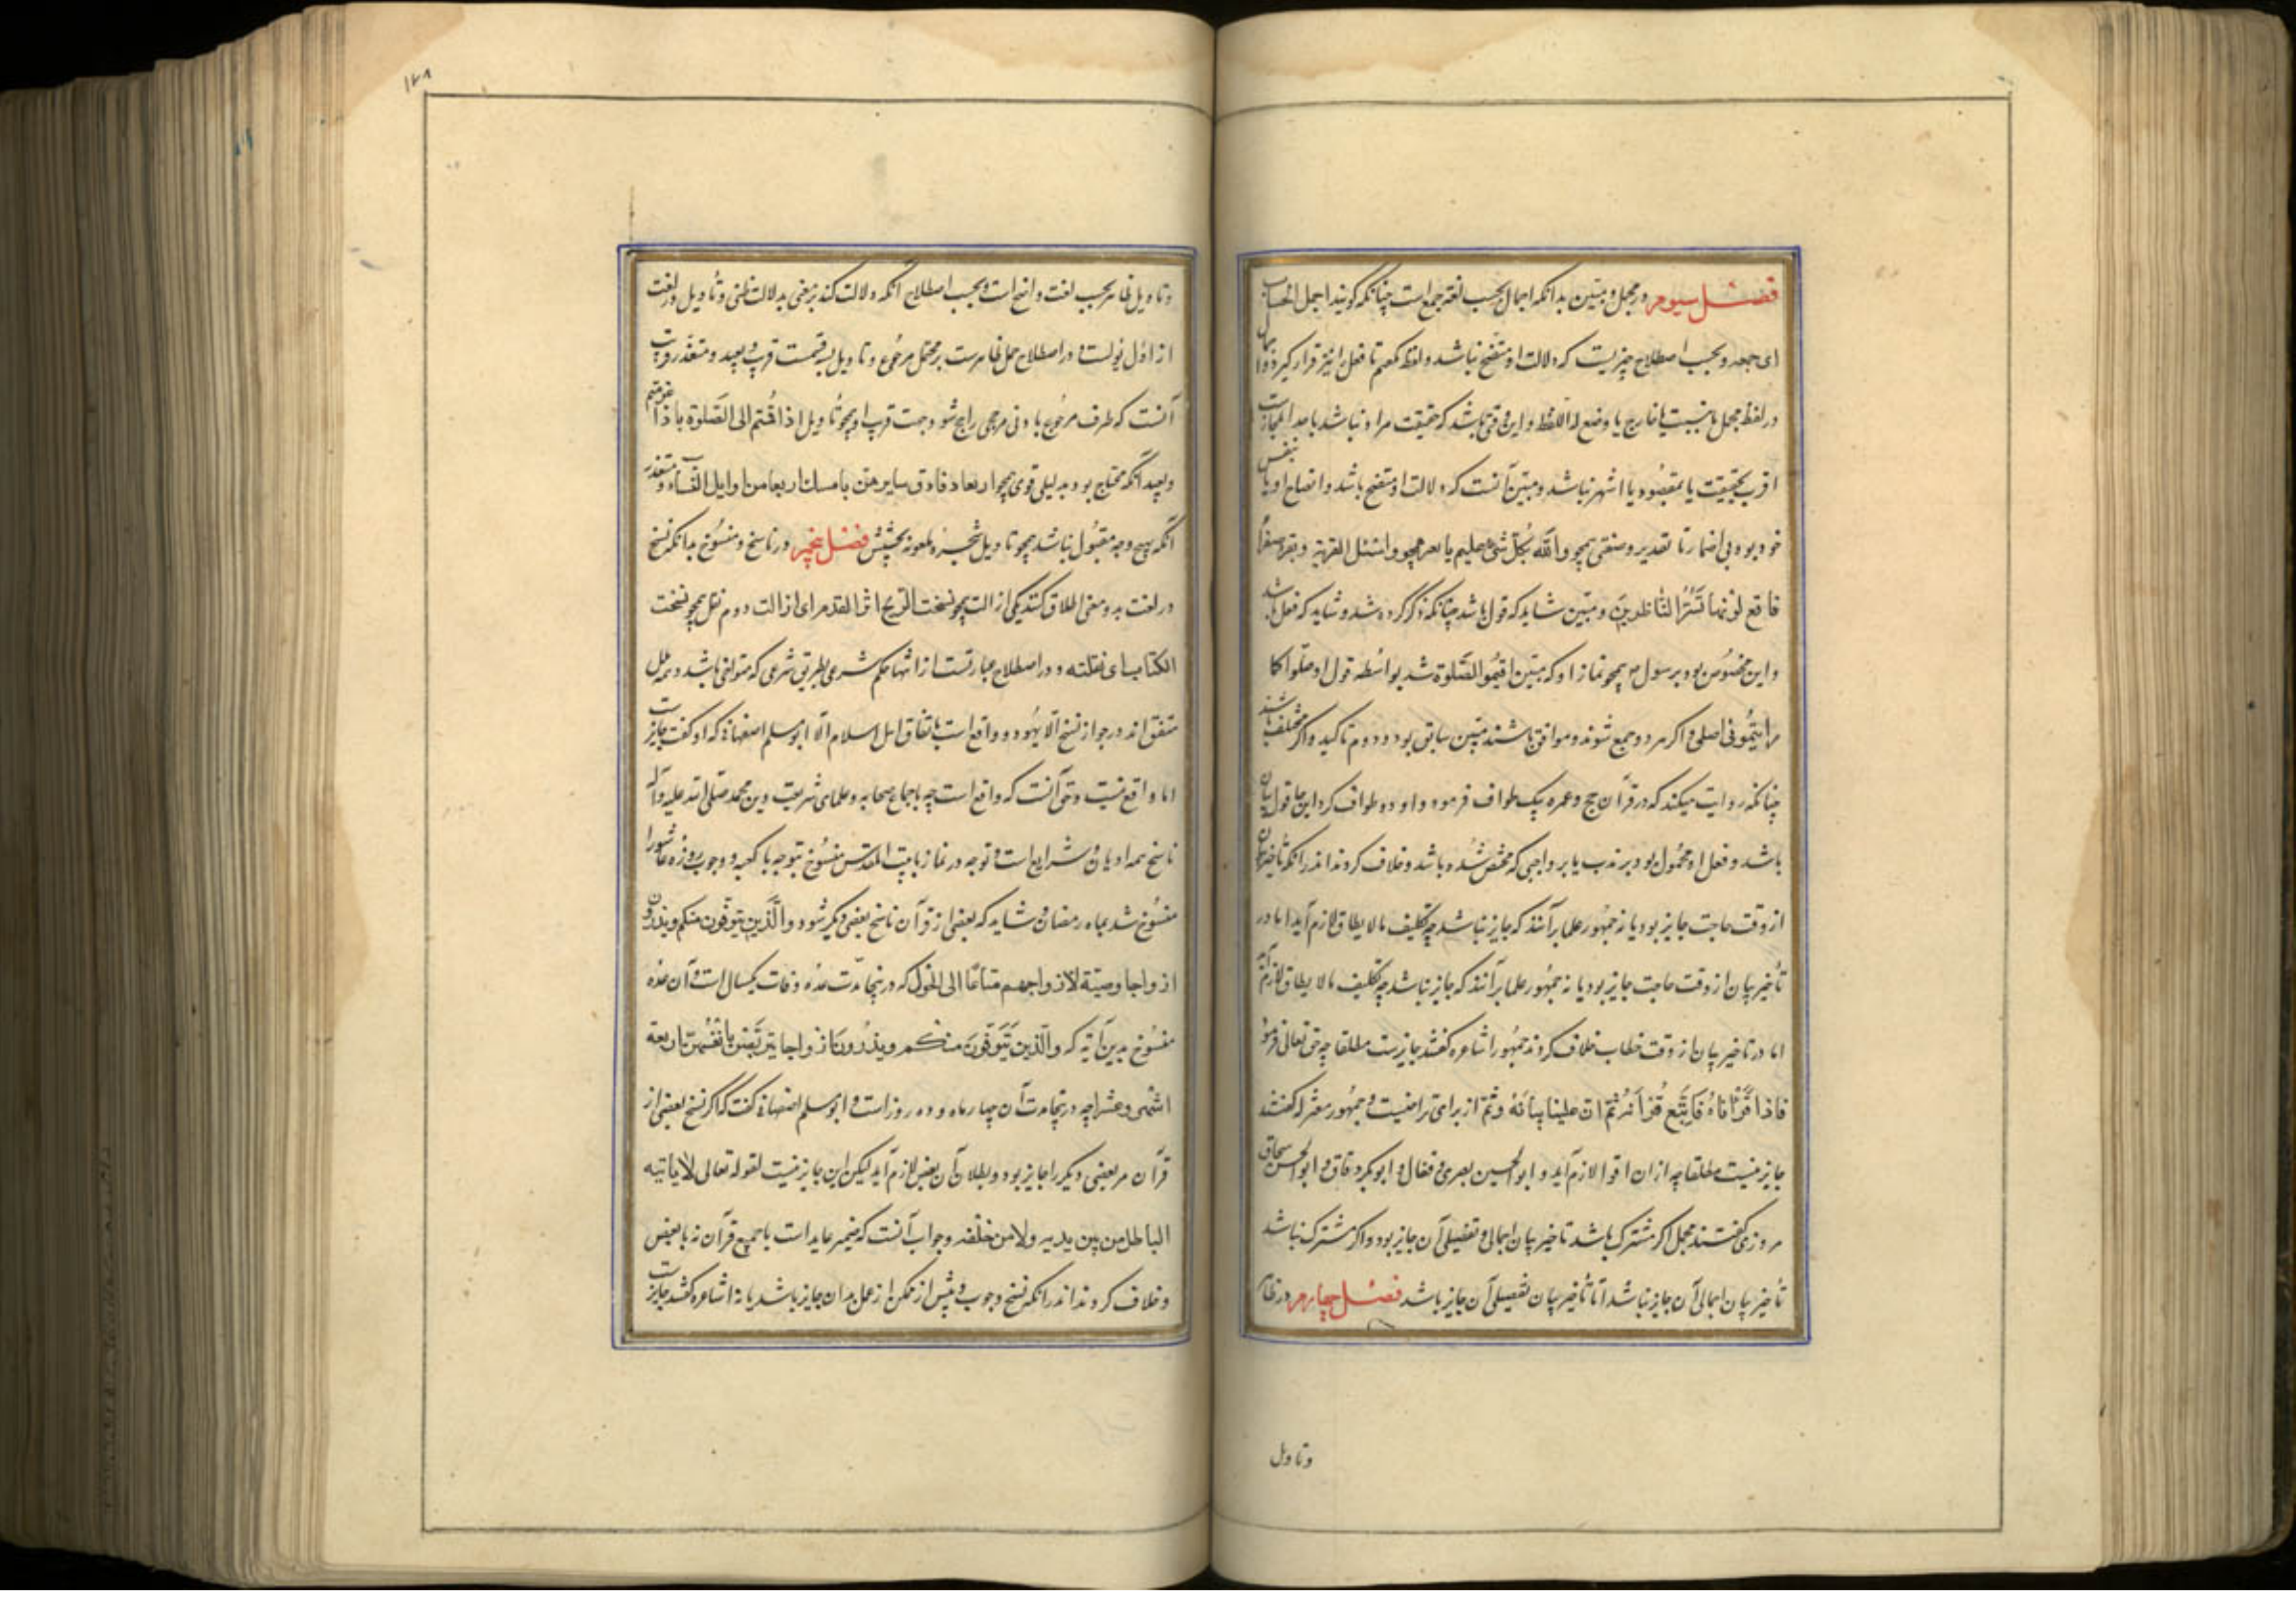 فصل سیوم در مجمل و مبین بدانکه اجمال بحسب لغة جمع است چنانکه کویند اجمل الحساب
ای جمعه و بحسب اصطلاح چیزیست که دلالت او متضح نباشد و لفظ مجمل تا فعل را نیز فرا کیرد و اجمال
در لفظ مجمل یا بنسبت با خارج یا وضع له اللفظ و این وقتی باشد که حقیقت مراد نباشد با مجازات
اقرب بحقیقت یا بمقصود یا اشهر نباشد و مبین آنست که دلالت او متضح باشد و اتضاح او یا بنفس
خود بود بی اضمار تا تقدیر و صنعتی همچو والله بکل شیء علیم یا بغیر همچو واسئل القریة و بقرة صفراء
فاقع لونها تسر الناظرین و مبین شاید که قول باشد چنانکه ذکر کرده شد و شاید که فعل باشد
و این مخصوص بود برسول ص همچو نماز او که مبین اقیموا الصلوة شد بواسطه قول او صلوا کما
رایتمونی اصلی و اکر هر دو جمع شوند و موافق باشند مبین سابق بود و دوم تاکید و اکر مختلف باشند
چنانکه روایت میکند که در قرآن حج و عمره یک طواف فرمود و او دو طواف کرد این جا قول بیان
باشد و فعل او محمول بود بر ندب یا بر واجبی که مختص شده باشد و خلاف کردند اندر آنکه تاخیر بیان
از وقت حاجت جایز بود یا نه جمهور علما بر آنند که جایز نباشد چه تکلیف مالا یطاق لازم آید اما در
تأخیر بیان از وقت حاجت جایز بود یا نه جمهور علما برآنند که جایز نباشد چه تکلیف مالا یطاق لازم آید
اما در تاخیر بیان از وقت خطاب خلاف کردند جمهور اشاعره کفتند جایزست مطلقا چه حق تعالی فرمود
فاذا قرأناه فاتبع قرآنه ثم ان علینا بیانه و ثم از برای تراخیست و جمهور معتزله کفتند
جایز نیست مطلقا چه از ان اقوا لازم آید و ابوالحسین بصری و قفال و ابوبکر دقاق و ابوالحسن اسحاق
مروزی کفتند مجمل اکر مشترک باشد تاخیر بیان اجمالی و تفصیلی آن جایز بود و اکر مشترک نباشد
تأخیر بیان اجمالی آن جایز نباشد اما تأخیر بیان تفصیلی آن جایز باشد فصل چهارم در ظاهر
وتاویل
۱۲۸
وتاویل ظاهر بحسب لغت واضح است و بحسب اصطلاح آنکه دلالت کند بر معنی بدلالت ظنی و تأویل در لغت
از اول یؤلست و در اصطلاح حمل ظاهرست بر محتمل مرجوح و تاویل بسه قسمت قریب و بعید و متعذر قریب
آنست که طرف مرجوح با دنی مرجحی راجح شود جهت قرب او همچو تأویل اذا قمتم الی الصلوة باذا عزمتم
وبعید آنکه محتاج بود بدلیلی قوی همچو اربعا و فارق سایرهن بامسک اربعا من اوایل النساء و متعذر
آنکه بهیچ وجه مقبول نباشد همچو تاویل فصل پنجم در ناسخ و منسوخ بدانکه نسخ
در لغت بدو معنی اطلاق کنند یکی ازالت همچو نسخت الریح اثر القدم ای ازالت دوم نقل همچو نسخت
الکتاب ای نقلته و در اصطلاح عبارتست از انتهاء حکم شرعی بطریق شرعی که متراخی باشد و همه ملل
متفق اند در جواز نسخ الا یهود و واقع است باتفاق اهل اسلام الا ابومسلم اصفهانی که او کفت جایزست
اما واقع نیست و حق آنست که واقع است چه باجماع صحابه و علمای شریعت دین محمد صلی الله علیه وآله
ناسخ همه ادیان و شرایع است و توجه در نماز بابیت المقدس منسوخ بتوجه با کعبه و وجوب روزه عاشورا
منسوخ شد بماه رمضان و شاید که بعضی از قرآن ناسخ بعضی دیکر شود و والذین یتوفون منکم ویذرون
ازواجا وصیة لازواجهم متاعا الی الحول که درینجا مدت عده وفات یکسال است و آن عده
منسوخ بدین آیة که والذین یتوفون منکم ویذرون ازواجا یتربصن بانفسهن اربعة
اشهر وعشرا چه درینجا مدت آن چهار ماه و ده روز است و ابومسلم اصفهانی کفت که اکر نسخ بعضی از
قرآن مر بعضی دیکر را جایز بود و بطلان آن بعض لازم آید لیکن این جایز نیست لقوله تعالی لا یاتیه
الباطل من بین یدیه ولا من خلفه وجواب آنست که ضمیر عاید است با جمیع قرآن نه با بعض
و خلاف کردند اندر آنکه نسخ وجوب پیش از تمکن از عمل بدان جایز باشد یا نه اشاعره کفتند جایزست